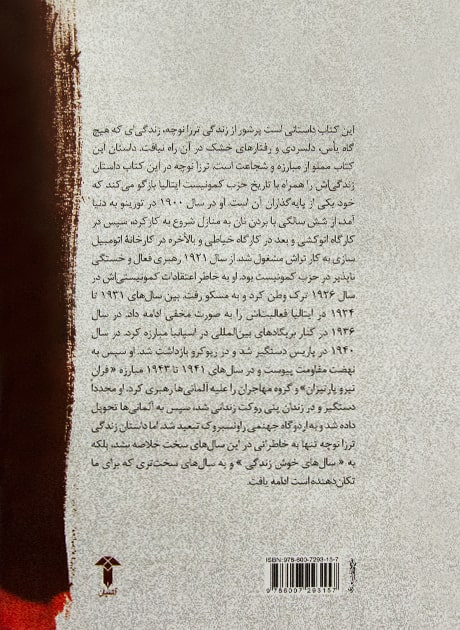 این کتاب داستانی است پرشور از زندگی ترزا نوچه، زندگی‌ای که هیچ
گاه یأس، دلسردی و رفتارهای خشک در آن راه نیافت. داستان این
کتاب مملو از مبارزه و شجاعت است. ترزا نوچه در این کتاب داستان
زندگی‌اش را همراه با تاریخ حزب کمونیست ایتالیا بازگو می‌کند که
خود یکی از پایه‌گذاران آن است. او در سال ۱۹۰۰ در تورینو به دنیا
آمد، از شش سالگی با بردن نان به منازل شروع به کار کرد، سپس در
کارگاه اتوکشی و بعد در کارگاه خیاطی و بالأخره در کارخانهٔ اتومبیل
سازی به کار تراش مشغول شد. از سال ۱۹۲۱ رهبری فعال و خستگی
ناپذیر در حزب کمونیست بود. او به خاطر اعتقادات کمونیستی‌اش در
سال ۱۹۲۶ ترک وطن کرد و به مسکو رفت. بین سال‌های ۱۹۳۱ تا
۱۹۳۴ در ایتالیا فعالیت‌اش را به صورت مخفی ادامه داد. در سال
۱۹۳۶ در کنار بریگادهای بین‌المللی در اسپانیا مبارزه کرد. در سال
۱۹۴۰ در پاریس دستگیر شد و در ریوکرو بازداشت شد. او سپس به
نهضت مقاومت پیوست و در سال‌های ۱۹۴۱ تا ۱۹۴۳ مبارزه «فران
تیرو پارتیزان» و گروه مهاجران را علیه آلمانی‌ها رهبری کرد. او مجدداً
دستگیر و در زندان پتی روکت زندانی شد، سپس به آلمانی‌ها تحویل
داده شد و به اردوگاه جهنمی راونسبروک تبعید شد. اما داستان زندگی
ترزا نوچه تنها به خاطراتی در این سال‌های سخت خلاصه نشد، بلکه
به « سال‌های خوش زندگی » و به سال‌های سخت‌تری که برای ما
تکان‌دهنده است ادامه یافت.
ISBN: 978-600-7293-15-7
9786007293157